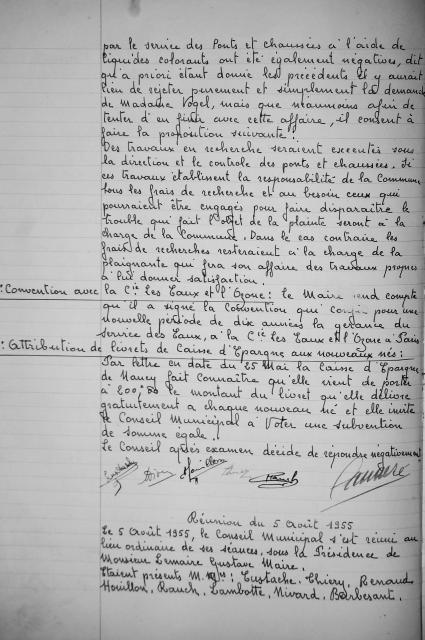 par le service des Ponts et chaussées à l'aide de
liquides colorants ont été également négatives, dit
qu'à priori étant donné les précédents il y aurait
lieu de rejeter purement et simplement la demande
de Madame Vogel, mais que néanmoins afin de
tenter d'en finir avec cette affaire, il consent à
faire la proposition suivante :
Des travaux en recherche seraient executés sous
la direction et le controle des ponts et chaussées. Si
ces travaux établissent la responsabilité de la Commune
tous les frais de recherche et au besoin ceux qui
pourraient être engagés pour faire disparaître le
trouble qui fait l'objet de la plainte seront à la
charge de la Commune. Dans le cas contraire les
frais de recherches resteraient à la charge de la
plaignante qui fera son affaire des travaux propres
à lui donner satisfaction.
: Convention avec la Cie les Eaux et l'Ozone : le Maire rend compte
qu'il a signé la Convention qui confie pour une
nouvelle période de dix années la gérance du
service des Eaux, à la Cie les Eaux et l'Ozone à Paris
: Attribution de livrets de Caisse d'Epargne aux nouveaux nés :
Par lettre en date du 25 Mai la Caisse d'Epargne
de Nancy fait connaître qu'elle vient de porter
à 200,00 le montant du livret qu'elle délivre
gratuitement à chaque nouveau né et elle invite
le Conseil Municipal à voter une subvention
de somme égale.
Le Conseil après examen décide de répondre négativement
Rauch Lemaire
Réunion du 5 Août 1955
Le 5 Août 1955, le Conseil Municipal s'est réuni au
lieu ordinaire de ses séances, sous la Présidence de
Monsieur Lemaire Gustave Maire.
Etaient présents M. : Eustache, Thiery, Renaud
Houillon, Rauch, Lambotte, Nivard, Barbesant.